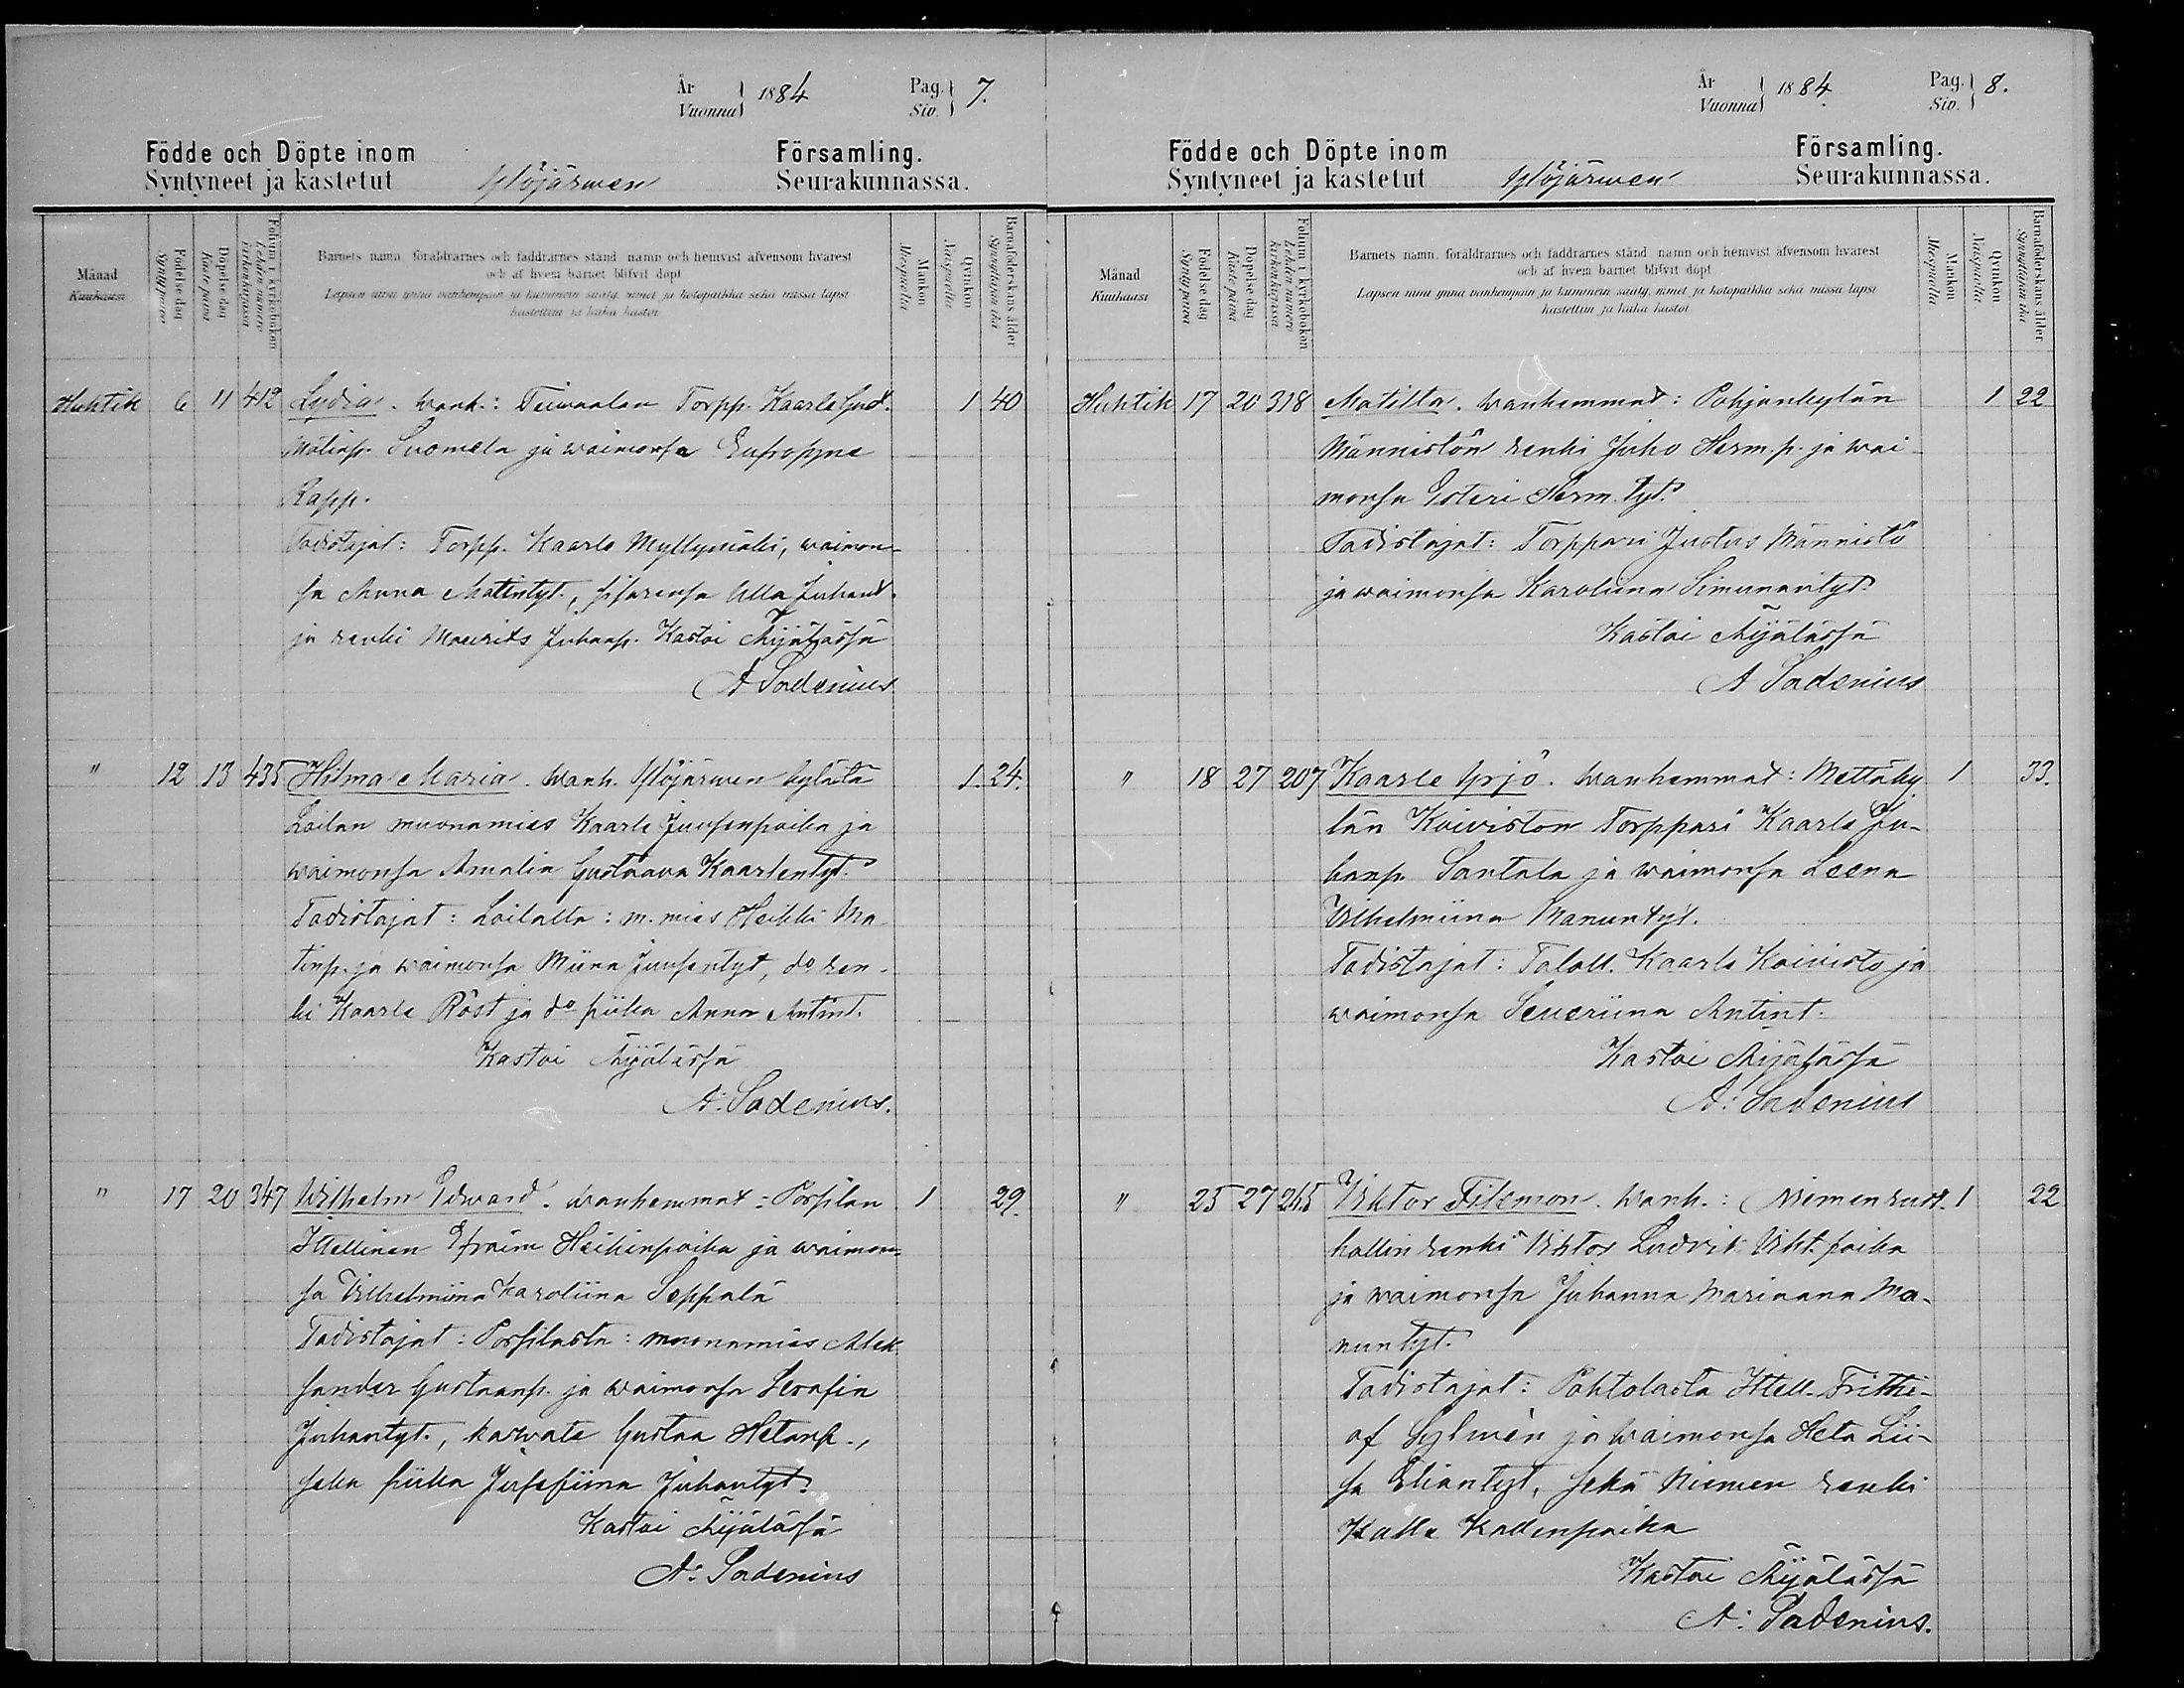 År
Vuonna } 1884 Pag.
Siv. } 7.
Födde och Döpte inom Ylöjärwen Församling.
Syntyneet ja kastetut Seurakunnassa.
Månad
Kuukausi
Födelse dag
Synty päivä
Döpelse dag
Kaste päivä
Folium i kyrkoboken
Lehden numero kirkonkirjassa
Barnets namn, föräldrarnes och faddrarnes stånd, namn och hemvist äfvensom hvarest
och af hvem barnet blifvit döpt
Lapsen nimi ynnä vanhempain ja kummein sääty, nimet ja kotopaikka sekä missä lapsi
kastettiin ja kuka kastoi
Mankön
Miespuolia
Qvinkön
Naispuolia
Barnaföderskans ålder
Synnyttävän ikä
Huhtik 6 11 412 Lydia. Wanh.: Teiwaalan Torpp. Kaarle Gust. 1 40
Matinp. Suomela ja waimonsa Eufrosyne
Rapp.
Todistajat: Torpp. Kaarle Myllymäki, waimon-
sa Anna Matintyt., sisarensa Ulla Juhant.
ja renki Maurits Juhanp. Kastoi Äijälässä
A Sadenius
" 12 13 435 Hilma Maria. Wanh. Ylöjärwen kylästä 1. 24.
Loilan muonamies Kaarle Juusenpoika ja
waimonsa Amalia Gustaava Kaarlentyt.
Todistajat: Loilalta: m. mies Heikki Ma
tinp. ja waimonsa Miina Juusentyt, do ren-
ki Kaarle Röst ja do piika Anna Antint.
Kastoi Äijälässä
A: Sadenius.
" 17 20 347 Wilhelm Edward. Wanhemmat: Porsilan 1 29.
Itellinen Efraim Heikinpoika ja waimon-
sa Vilhelmiina Karoliina Seppälä
Todistajat: Porsilasta: muonamies Alek
sander Gustaanp. ja waimonsa Serafia
Juhantyt., karwate Gustaa Hetanp.,
seka piika Jusefiina Juhantyt.
Kastoi Äijälässä
A: Sadenius
År
Vuonna } 1884. Pag.
Siv. } 8.
Födde och Döpte inom Ylöjärwen Församling.
Syntyneet ja kastetut Seurakunnassa.
Månad
Kuukausi
Födelse dag
Synty päivä
Döpelse dag
Kaste päivä
Folium i kyrkoboken
Lehden numero kirkonkirjassa
Barnets namn, föräldrarnes och faddrarnes stånd, namn och hemvist äfvensom hvarest
och af hvem barnet blifvit döpt
Lapsen nimi ynnä vanhempain ja kummein sääty, nimet ja kotopaikka sekä missä lapsi
kastettiin ja kuka kastoi
Mankön
Miespuolia
Qvinkön
Naispuolia
Barnaföderskans ålder
Synnyttävän ikä
Huhtik 17 20 318 Matilta. Wanhemmat: Pohjankylän 1 22
Männistön renki Juho Herm. p. ja wai-
monsa Esteri Herm. tyt.
Todistajat: Torppari Justus Männistö
ja waimonsa Karoliina Simunantyt.
Kastoi Äijälässä
A Sadenius
" 18 27 207 Kaarle Yrjö. Wanhemmat: Mettäky 1 33.
län Koiviston Torppari Kaarle Ju-
hanp. Santala ja waimonsa Leena
Vilhelmiina Manuntyt.
Todistajat: Taloll. Kaarle Koivisto ja
waimonsa Severiina Antint.
Kastoi Äijälässä
A: Sadenius
" 25 27 265 Viktor Filemon. Wanh.: Niemen rust. 1 22
hollin renki Viktor Ludvik Vikt. poika
ja waimonsa Juhanna Mariaana Ma-
nuntyt.
Todistajat: Pohtolasta Ittell. Frithi-
of Sylwén ja waimonsa Heta Lii-
sa Eliantyt, sekä Niemen renki
Kalle Kallenpoika
Kastoi Äijälässä
A: Sadenius.